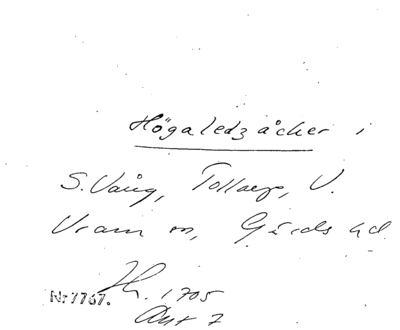 Högaledzåcker i
S. Vång, Tollarp, V.
Vram sn, Gärds hd
Nr 7767. Jh. 1705
Akt 7